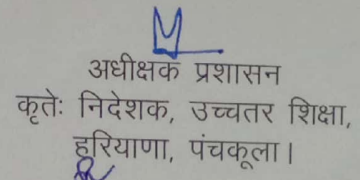 अधीक्षक प्रशासन
कृतेः निदेशक, उच्चतर शिक्षा,
हरियाणा, पंचकूला।